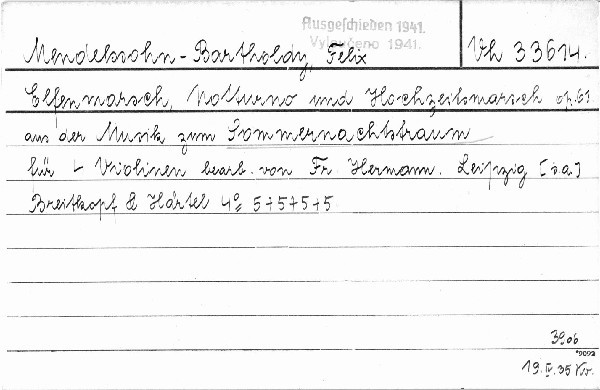 Ausgeschieden 1941.
Vyloučeno 1941.
Mendelssohn-Bartholdy, Felix Vh 33614.
Elfenmarsch, Notturno und Hochzeitsmarsch op. 61
aus der Musik zum Sommernachtstraum
für 4 Violinen bearb. von Fr. Hermann. Leipzig [s.a.]
Breitkopf & Härtel 4º 5+5+5+5
3906
*9092
19. V. 35